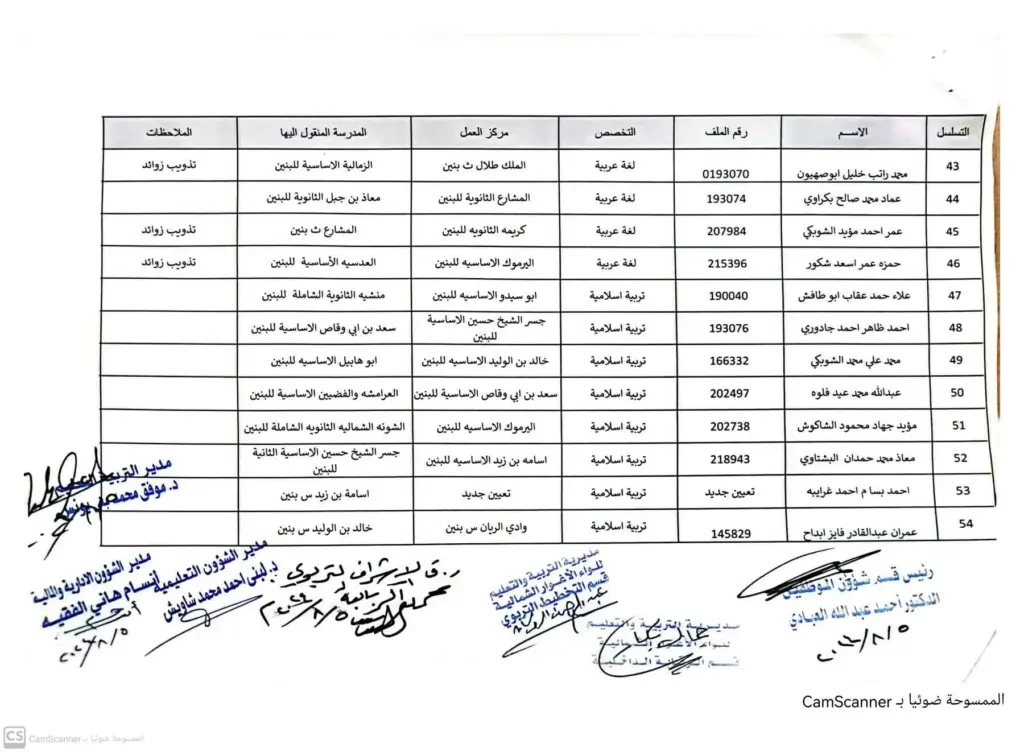 التسلسل الاسم رقم الملف التخصص مركز العمل المدرسة المنقول اليها الملاحظات
43 محمد راتب خليل ابوصهيون 0193070 لغة عربية الملك طلال ث بنين الزمالية الاساسية للبنين تذويب زوائد
44 عماد محمد صالح بكراوي 193074 لغة عربية المشارع الثانوية للبنين معاذ بن جبل الثانوية للبنين
45 عمر احمد مؤيد الشوبكي 207984 لغة عربية كريمه الثانويه للبنين المشارع ث بنين تذويب زوائد
46 حمزه عمر اسعد شكور 215396 لغة عربية اليرموك الاساسيه للبنين العدسيه الأساسية للبنين تذويب زوائد
47 علاء حمد عقاب ابو طافش 190040 تربية اسلامية ابو سيدو الاساسيه للبنين منشيه الثانوية الشاملة للبنين
48 احمد ظاهر احمد جادوري 193076 تربية اسلامية جسر الشيخ حسين الاساسية للبنين سعد بن ابي وقاص الاساسية للبنين
49 محمد علي محمد الشوبكي 166332 تربية اسلامية خالد بن الوليد الاساسيه للبنين ابو هابيل الاساسيه للبنين
50 عبدالله محمد عيد فلوه 202497 تربية اسلامية سعد بن ابي وقاص الاساسية للبنين العرامشه والفضيين الاساسية للبنين
51 مؤيد جهاد محمود الشاكوش 202738 تربية اسلامية اليرموك الاساسيه للبنين الشونه الشماليه الثانويه الشاملة للبنين
52 معاذ محمد حمدان البشتاوي 218943 تربية اسلامية اسامه بن زيد الاساسيه للبنين جسر الشيخ حسين الاساسية الثانية للبنين
53 احمد بسام احمد غرايبه تعيين جديد تربية اسلامية تعيين جديد اسامة بن زيد س بنين
54 عمران عبدالقادر فايز ابداح 145829 تربية اسلامية وادي الريان س بنين خالد بن الوليد س بنين
رئيس قسم شؤون الموظفين
الدكتور أحمد عبد الله العبادي
مديرية التربية والتعليم
للواء الأغوار الشمالية
قسم الرقابة الداخلية
مديرية التربية والتعليم
للواء الأغوار الشمالية
قسم التخطيط التربوي
ر.ق الإشراف التربوي
مدير الشؤون التعليمية
د. لبنى احمد محمد شاويش
مدير الشؤون الادارية والمالية
إبتسام هاني الفقيه
مدير التربية
د. موفق محمد
الممسوحة ضوئيا بـ CamScanner
CS CamScanner الممسوحة ضوئيا بـ